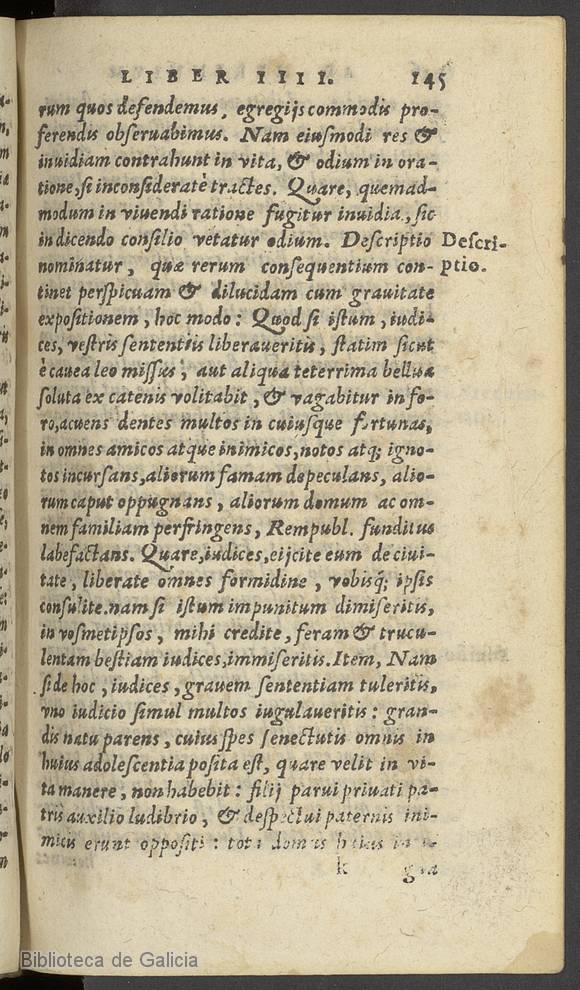 LIBER IIII. 145
rum quos defendemus, egregijs commodis pro-
ferendis obseruabimus. Nam eiusmodi res &
inuidiam contrahunt in vita, & odium in ora-
tione, si inconsideratè tractes. Quare, quemad-
modum in viuendi ratione fugitur inuidia, sic
in dicendo consilio vetatur odium. Descriptio Descri-
nominatur, quæ rerum consequentium con- ptio.
tinet perspicuam & dilucidam cum grauitate
expositionem, hoc modo: Quod si istum, iudi-
ces, vestris sententiis liberaueritis, statim sicut
è cauea leo missus, aut aliqua teterrima bellua
soluta ex catenis volitabit, & vagabitur in fo-
ro, acuens dentes multos in cuiusque fortunas,
in omnes amicos atque inimicos, notos atq; igno-
tos incursans, aliorum famam depeculans, alio-
rum caput oppugnans, aliorum domum ac om-
nem familiam perfringens, Rempubl. funditus
labefactans. Quare, iudices, eijcite eum de ciui-
tate, liberate omnes formidine, vobisq; ipsis
consulite. nam si istum impunitum dimiseritis,
in vosmetipsos, mihi credite, feram & trucu-
lentam bestiam iudices, immiseritis. Item, Nam
si de hoc, iudices, grauem sententiam tuleritis,
vno iudicio simul multos iugulaueritis: gran-
dis natu parens, cuius spes senectutis omnis in
huius adolescentia posita est, quare velit in vi-
ta manere, non habebit: filij parui priuati pa-
tris auxilio ludibrio, & despectui paternis ini-
micis erunt oppositi: tota domus huius
k gna
Biblioteca de Galicia